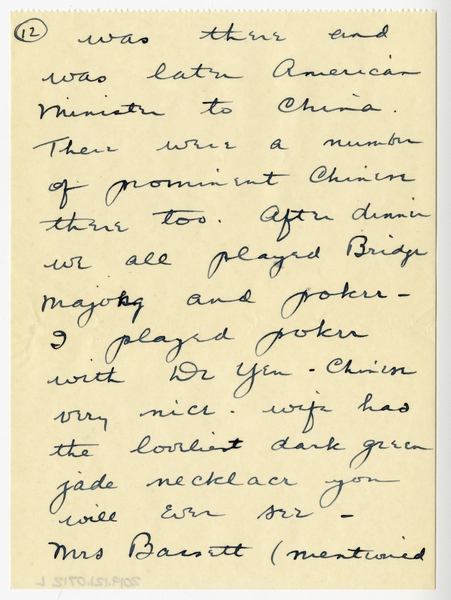 12
was there and
was later American
Minister to China.
There were a number
of prominent Chinese
there too. After dinner
we all played Bridge
majong and poker -
I played poker
with Dr Yen - Chinese
very nice. wife has
the loveliest dark green
jade necklace you
will ever see -
Mrs Bassett (mentioned
2019.121.0712 L